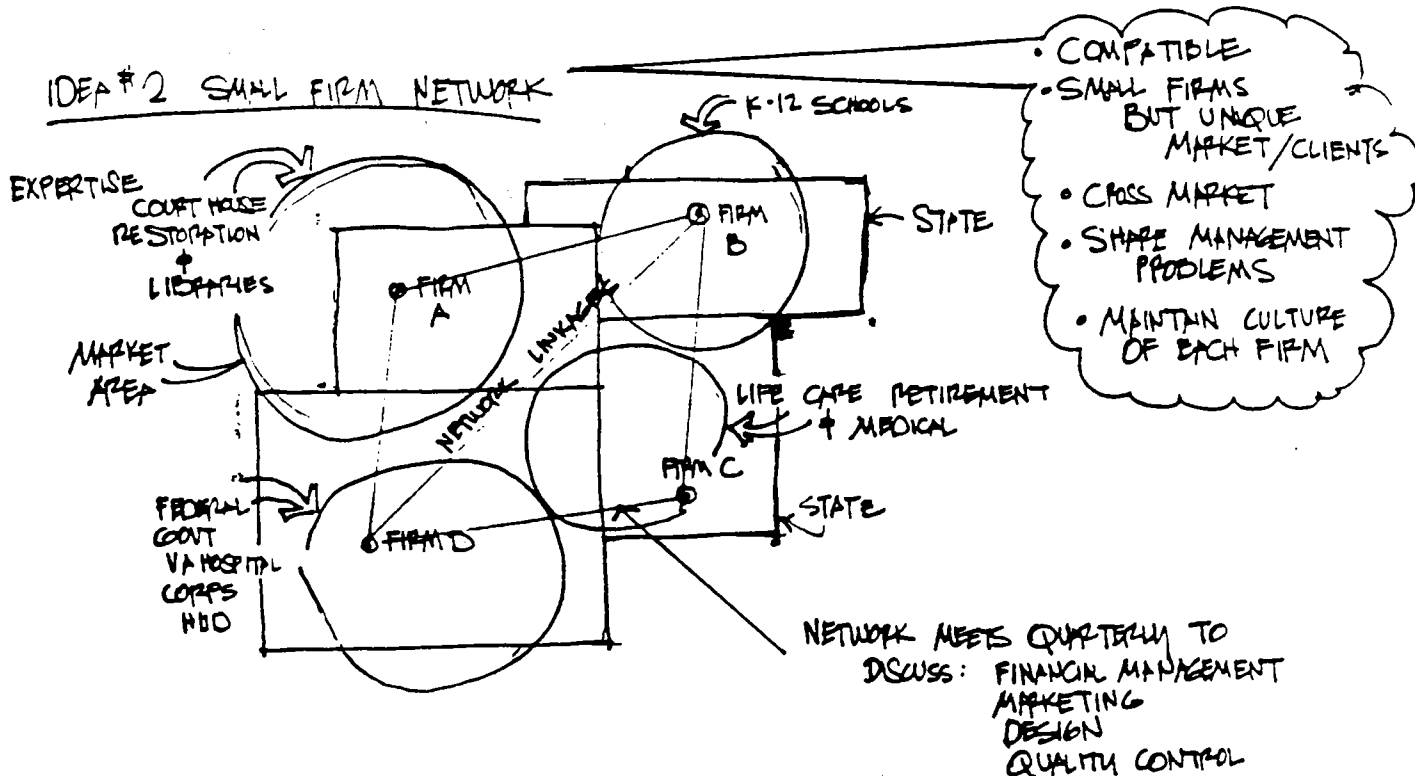 IDEA #2 SMALL FIRM NETWORK
• COMPATIBLE
• SMALL FIRMS
BUT UNIQUE
MARKET/CLIENTS
• CROSS MARKET
• SHARE MANAGEMENT
PROBLEMS
• MAINTAIN CULTURE
OF EACH FIRM
K-12 SCHOOLS
EXPERTISE
COURT HOUSE
RESTORATION
&
LIBRARIES
STATE
FIRM
B
FIRM
A
MARKET
AREA
NETWORK LINKAGE
LIFE CARE RETIREMENT
& MEDICAL
FIRM C
STATE
FEDERAL
GOVT
VA HOSPITAL
CORPS
HUD
FIRM D
NETWORK MEETS QUARTERLY TO
DISCUSS: FINANCIAL MANAGEMENT
MARKETING
DESIGN
QUALITY CONTROL